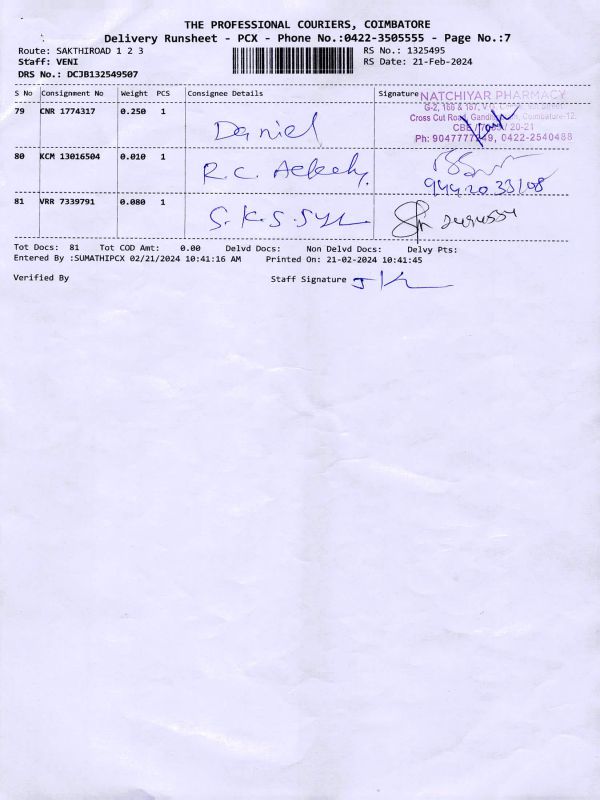 THE PROFESSIONAL COURIERS, COIMBATORE
Delivery Runsheet - PCX - Phone No.:0422-3505555 - Page No.:7
Route: SAKTHIROAD 1 2 3
RS No.: 1325495
Staff: VENI
RS Date: 21-Feb-2024
DRS No.: DCJB132549507
S No Consignment No Weight PCS Consignee Details Signature
NATCHIYAR PHARMACY
79 CNR 1774317 0.250 1 Daniel
Cross Cut Road, Coimbatore-12,
20-21
0422-2540488
80 KCM 13016504 0.010 1 R.C.
81 VRR 7339791 0.080 1 S.K.S.
Tot Docs: 81 Tot COD Amt: 0.00 Delvd Docs: Non Delvd Docs: Delvy Pts:
Entered By :SUMATHIPCX 02/21/2024 10:41:16 AM Printed On: 21-02-2024 10:41:45
Verified By Staff Signature